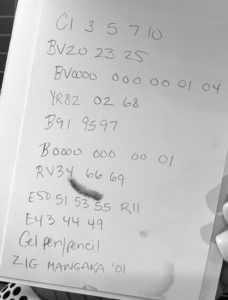 C1 3 5 7 10
BV20 23 25
BV0000 000 00 01 04
YR82 02 68
B91 95 97
B0000 000 00 01
RV34 66 69
E50 51 53 55 R11
E43 44 49
Gel pen/pencil
ZIG MANGAKA '01